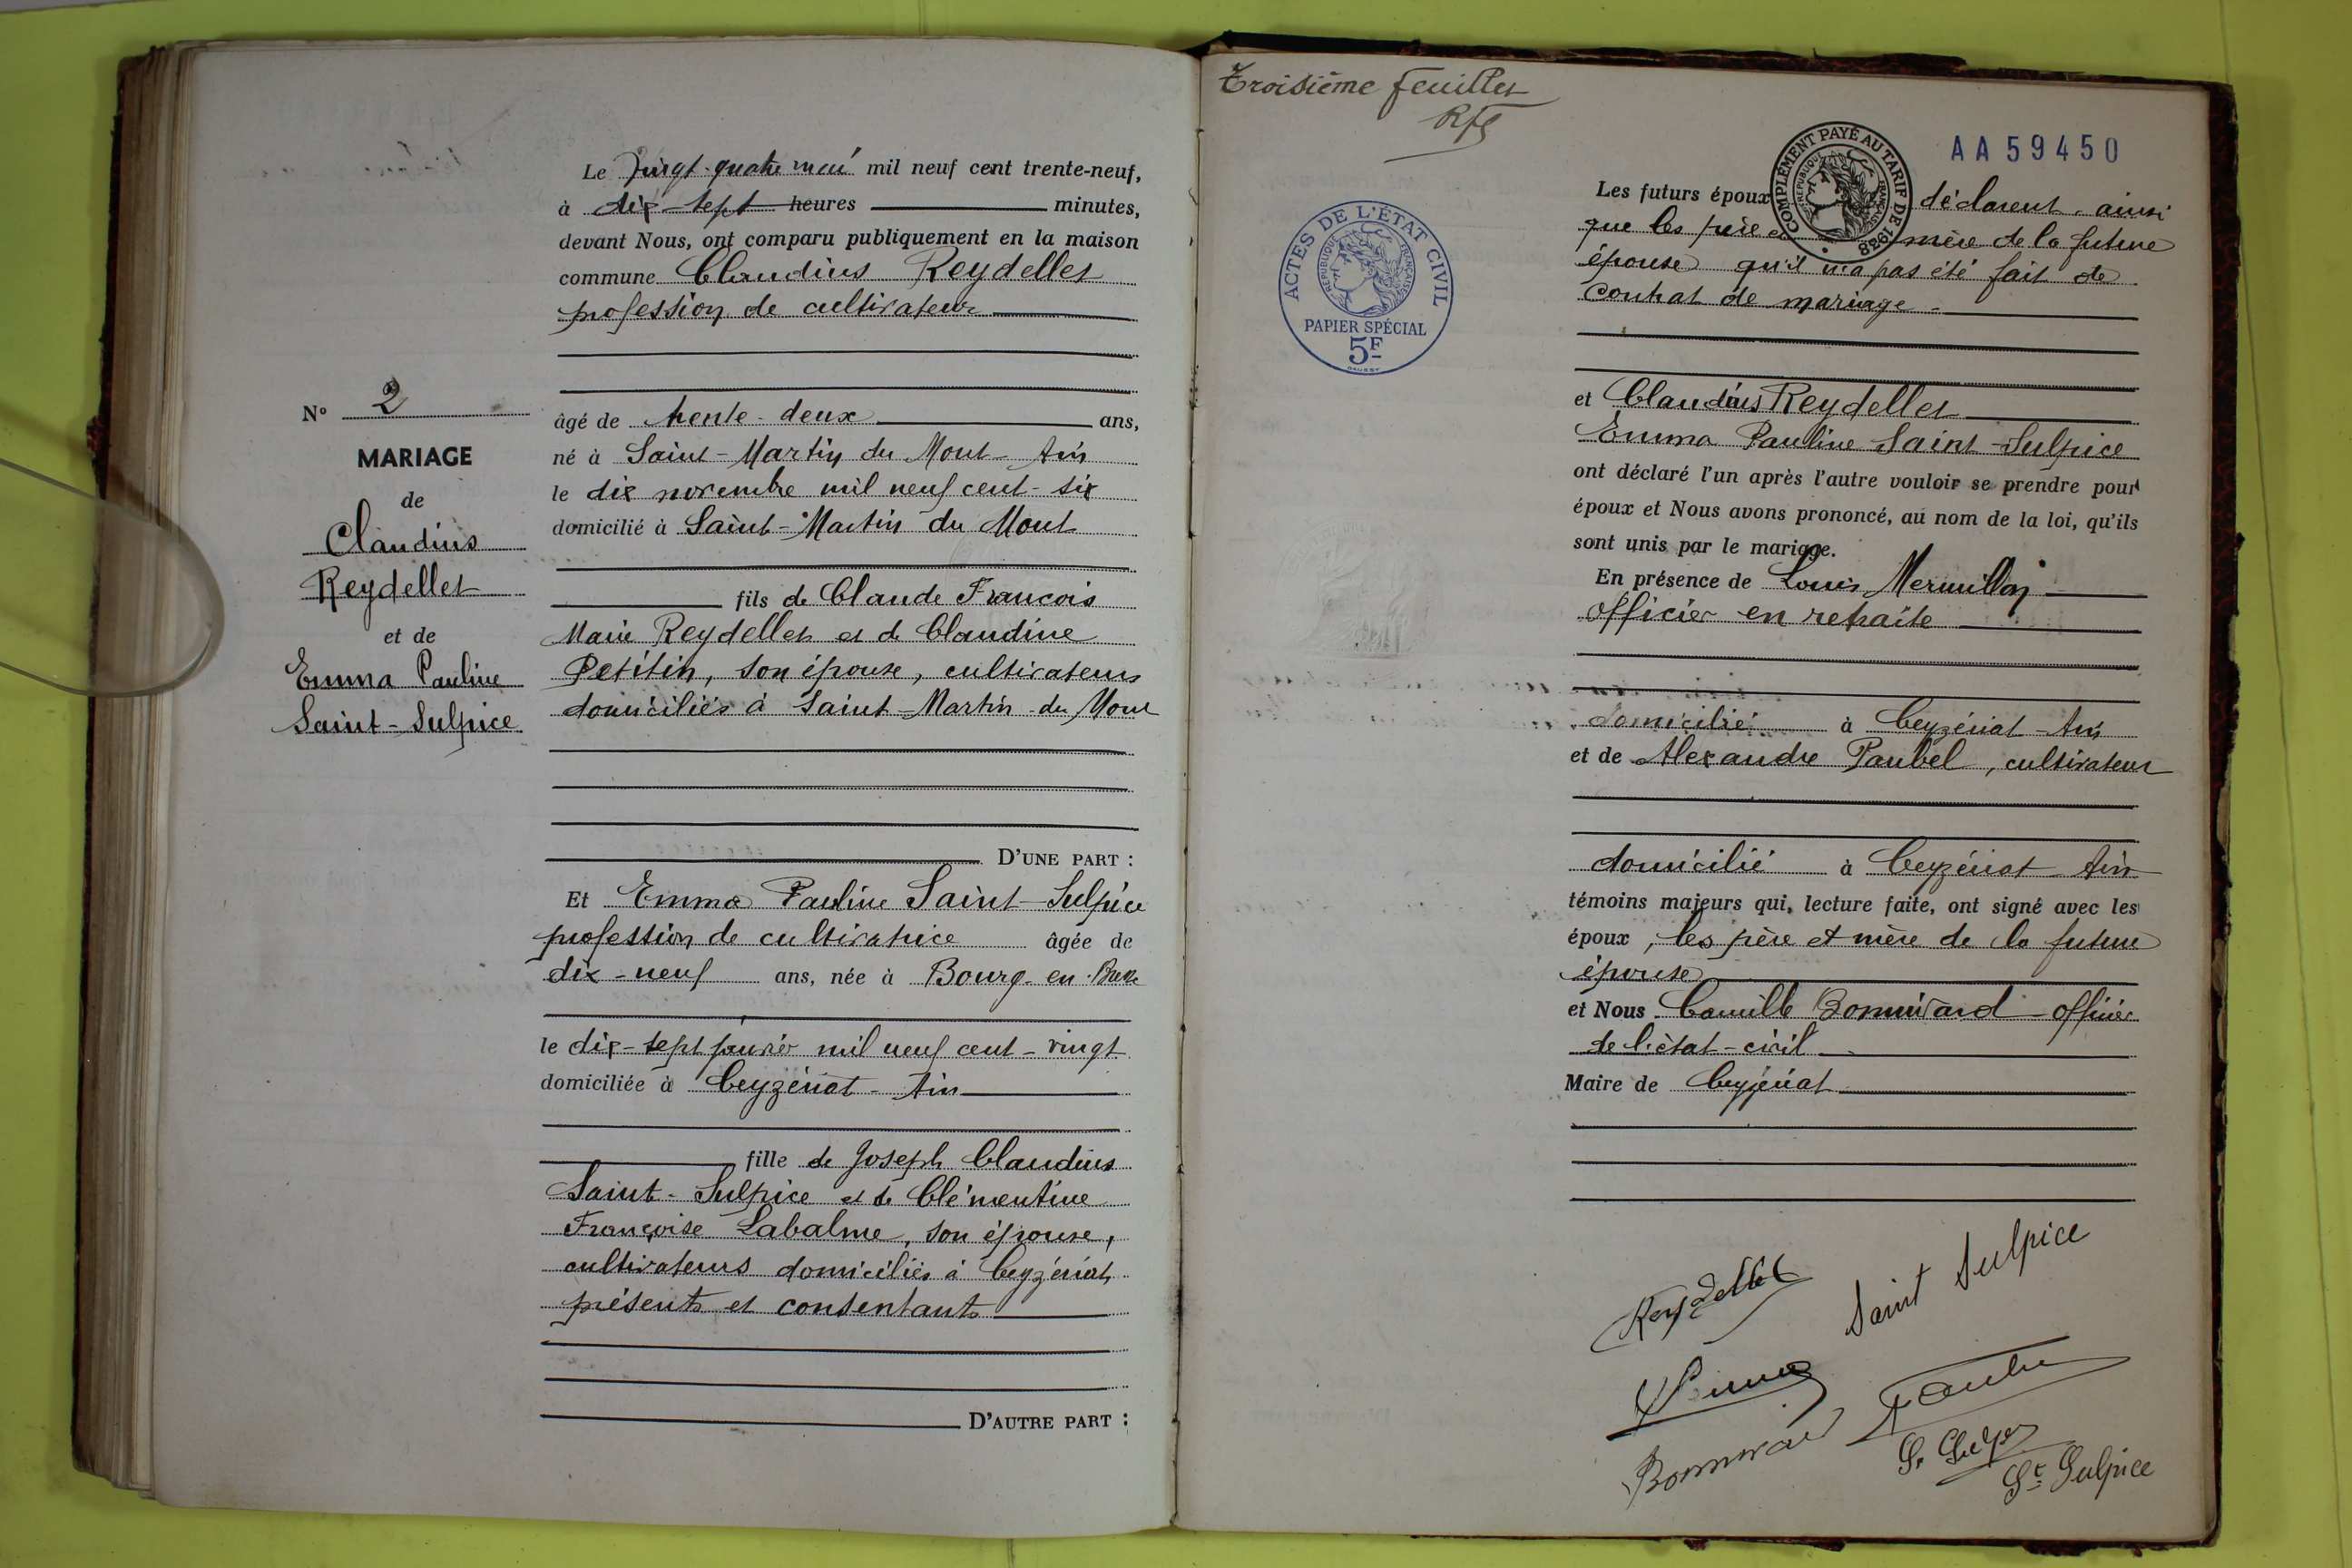 Le vingt-quatre mai mil neuf cent trente-neuf,
à dix-sept heures minutes,
devant Nous, ont comparu publiquement en la maison
commune Claudius Reydellet
profession de cultivateur
N° 2
MARIAGE
de
Claudius
Reydellet
et de
Emma Pauline
Saint-Sulpice
âgé de trente-deux ans,
né à Saint-Martin du Mont-Ain
le dix novembre mil neuf cent-six
domicilié à Saint-Martin du Mont
fils de Claude François
Marie Reydellet et de Claudine
Petitin, son épouse, cultivateurs
domiciliés à Saint-Martin-du Mont
D'UNE PART :
Et Emma Pauline Saint-Sulpice
profession de cultivatrice âgée de
dix-neuf ans, née à Bourg-en-Bresse
le dix-sept janvier mil neuf cent-vingt
domiciliée à Ceyzériat-Ain
fille de Joseph Claudius
Saint-Sulpice et de Clémentine
Françoise Labalme, son épouse,
cultivateurs domiciliés à Ceyzériat
présents et consentants
D'AUTRE PART :
Troisième feuillet
ACTES DE L'ÉTAT CIVIL
RÉPUBLIQUE FRANÇAISE
PAPIER SPÉCIAL
5F
COMPLÉMENT PAYÉ AU TARIF DE 1938
RÉPUBLIQUE FRANÇAISE
AA59450
Les futurs époux déclarent, ainsi
que les père et mère de la future
épouse qu'il n'a pas été fait de
contrat de mariage.
et Claudius Reydellet
Emma Pauline Saint-Sulpice
ont déclaré l'un après l'autre vouloir se prendre pour
époux et Nous avons prononcé, au nom de la loi, qu'ils
sont unis par le mariage.
En présence de Louis Mermillon
officier en retraite
domicilié à Ceyzériat-Ain
et de Alexandre Paubel, cultivateur
domicilié à Ceyzériat-Ain
témoins majeurs qui, lecture faite, ont signé avec les
époux, les père et mère de la future
épouse
et Nous Camille Bonnivard-officier
de l'état-civil
Maire de Ceyzériat
Reydellet
Saint Sulpice
Bonnivard
St Sulpice